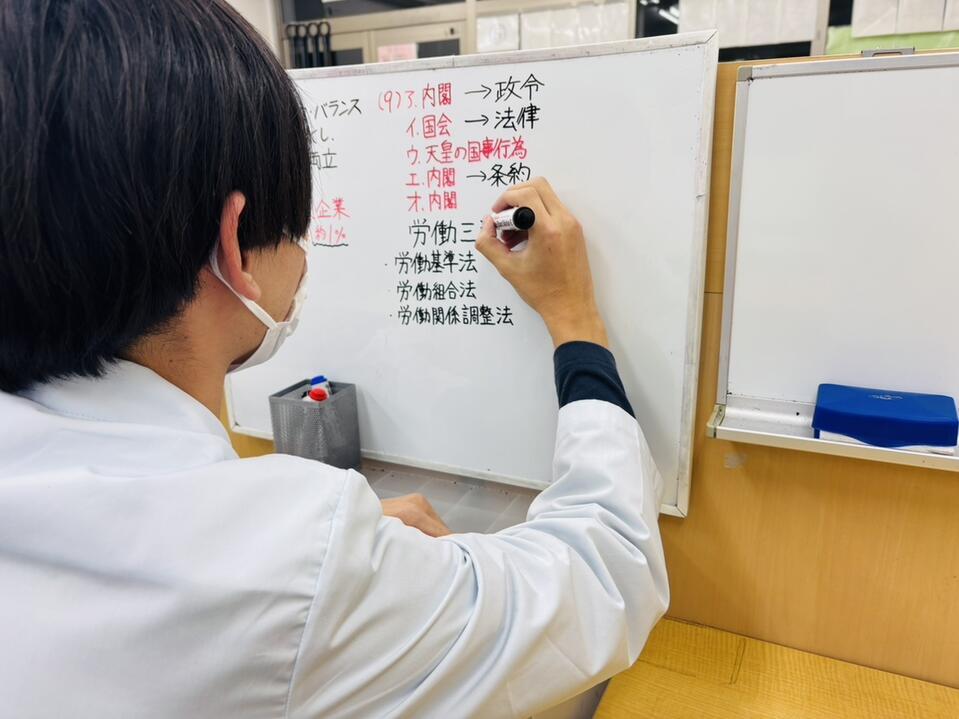 バランス
両立
企業
約1%
(9)ア.内閣→政令
イ.国会→法律
ウ.天皇の国事行為
エ.内閣→条約
オ.内閣
労働三
・労働基準法
・労働組合法
・労働関係調整法